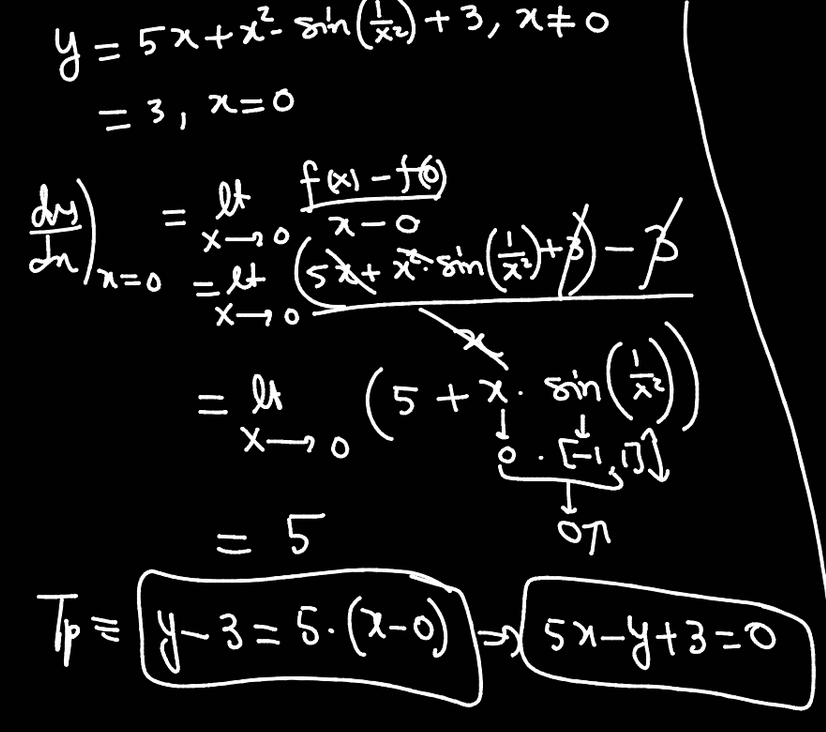 y = 5x + x². sin(1/x²) + 3, x ≠ 0
= 3, x = 0
dy/dx)x=0 = lt x→0 f(x) - f(0) / x - 0
= lt x→0 (5x + x². sin(1/x²) + 3) - 3 / x
= lt x→0 (5 + x. sin(1/x²))
0 . [-1, 1]
0
= 5
Tp ≡ y - 3 = 5.(x - 0) ⇒ 5x - y + 3 = 0